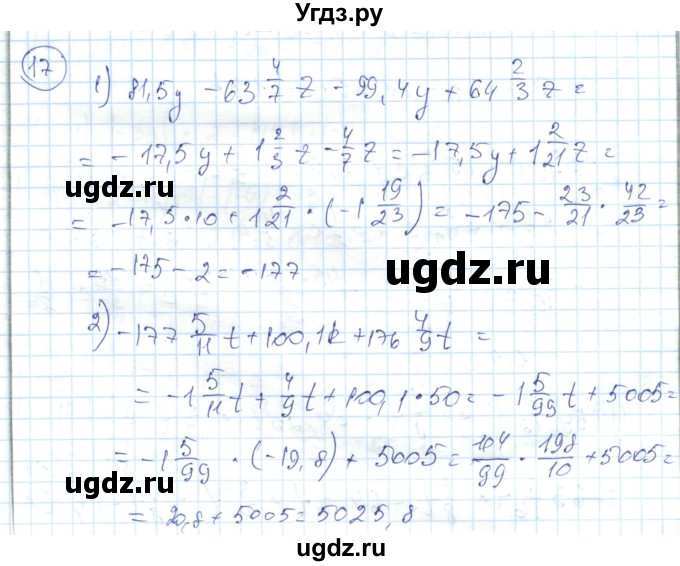 Угдз.ру
17
1) 81,5y - 63 4/7 z - 99,4y + 64 2/3 z =
= -17,5y + 1 2/3 z - 4/7 z = -17,5y + 1 2/21 z =
ugdz.ru ugdz.ru
= -17,5 · 10 + 1 2/21 · (-1 19/23) = -175 - 23/21 · 42/23 =
= -175 - 2 = -177
ugdz.ru
2) -177 5/11 t + 100,1k + 176 4/9 t =
= -1 5/11 t + 4/9 t + 100,1 · 50 = -1 5/99 t + 5005 =
ugdz.ru ugdz.ru
= -1 5/99 · (-19,8) + 5005 = 104/99 · 198/10 + 5005 =
= 20,8 + 5005 = 5025,8
ugdz.ru